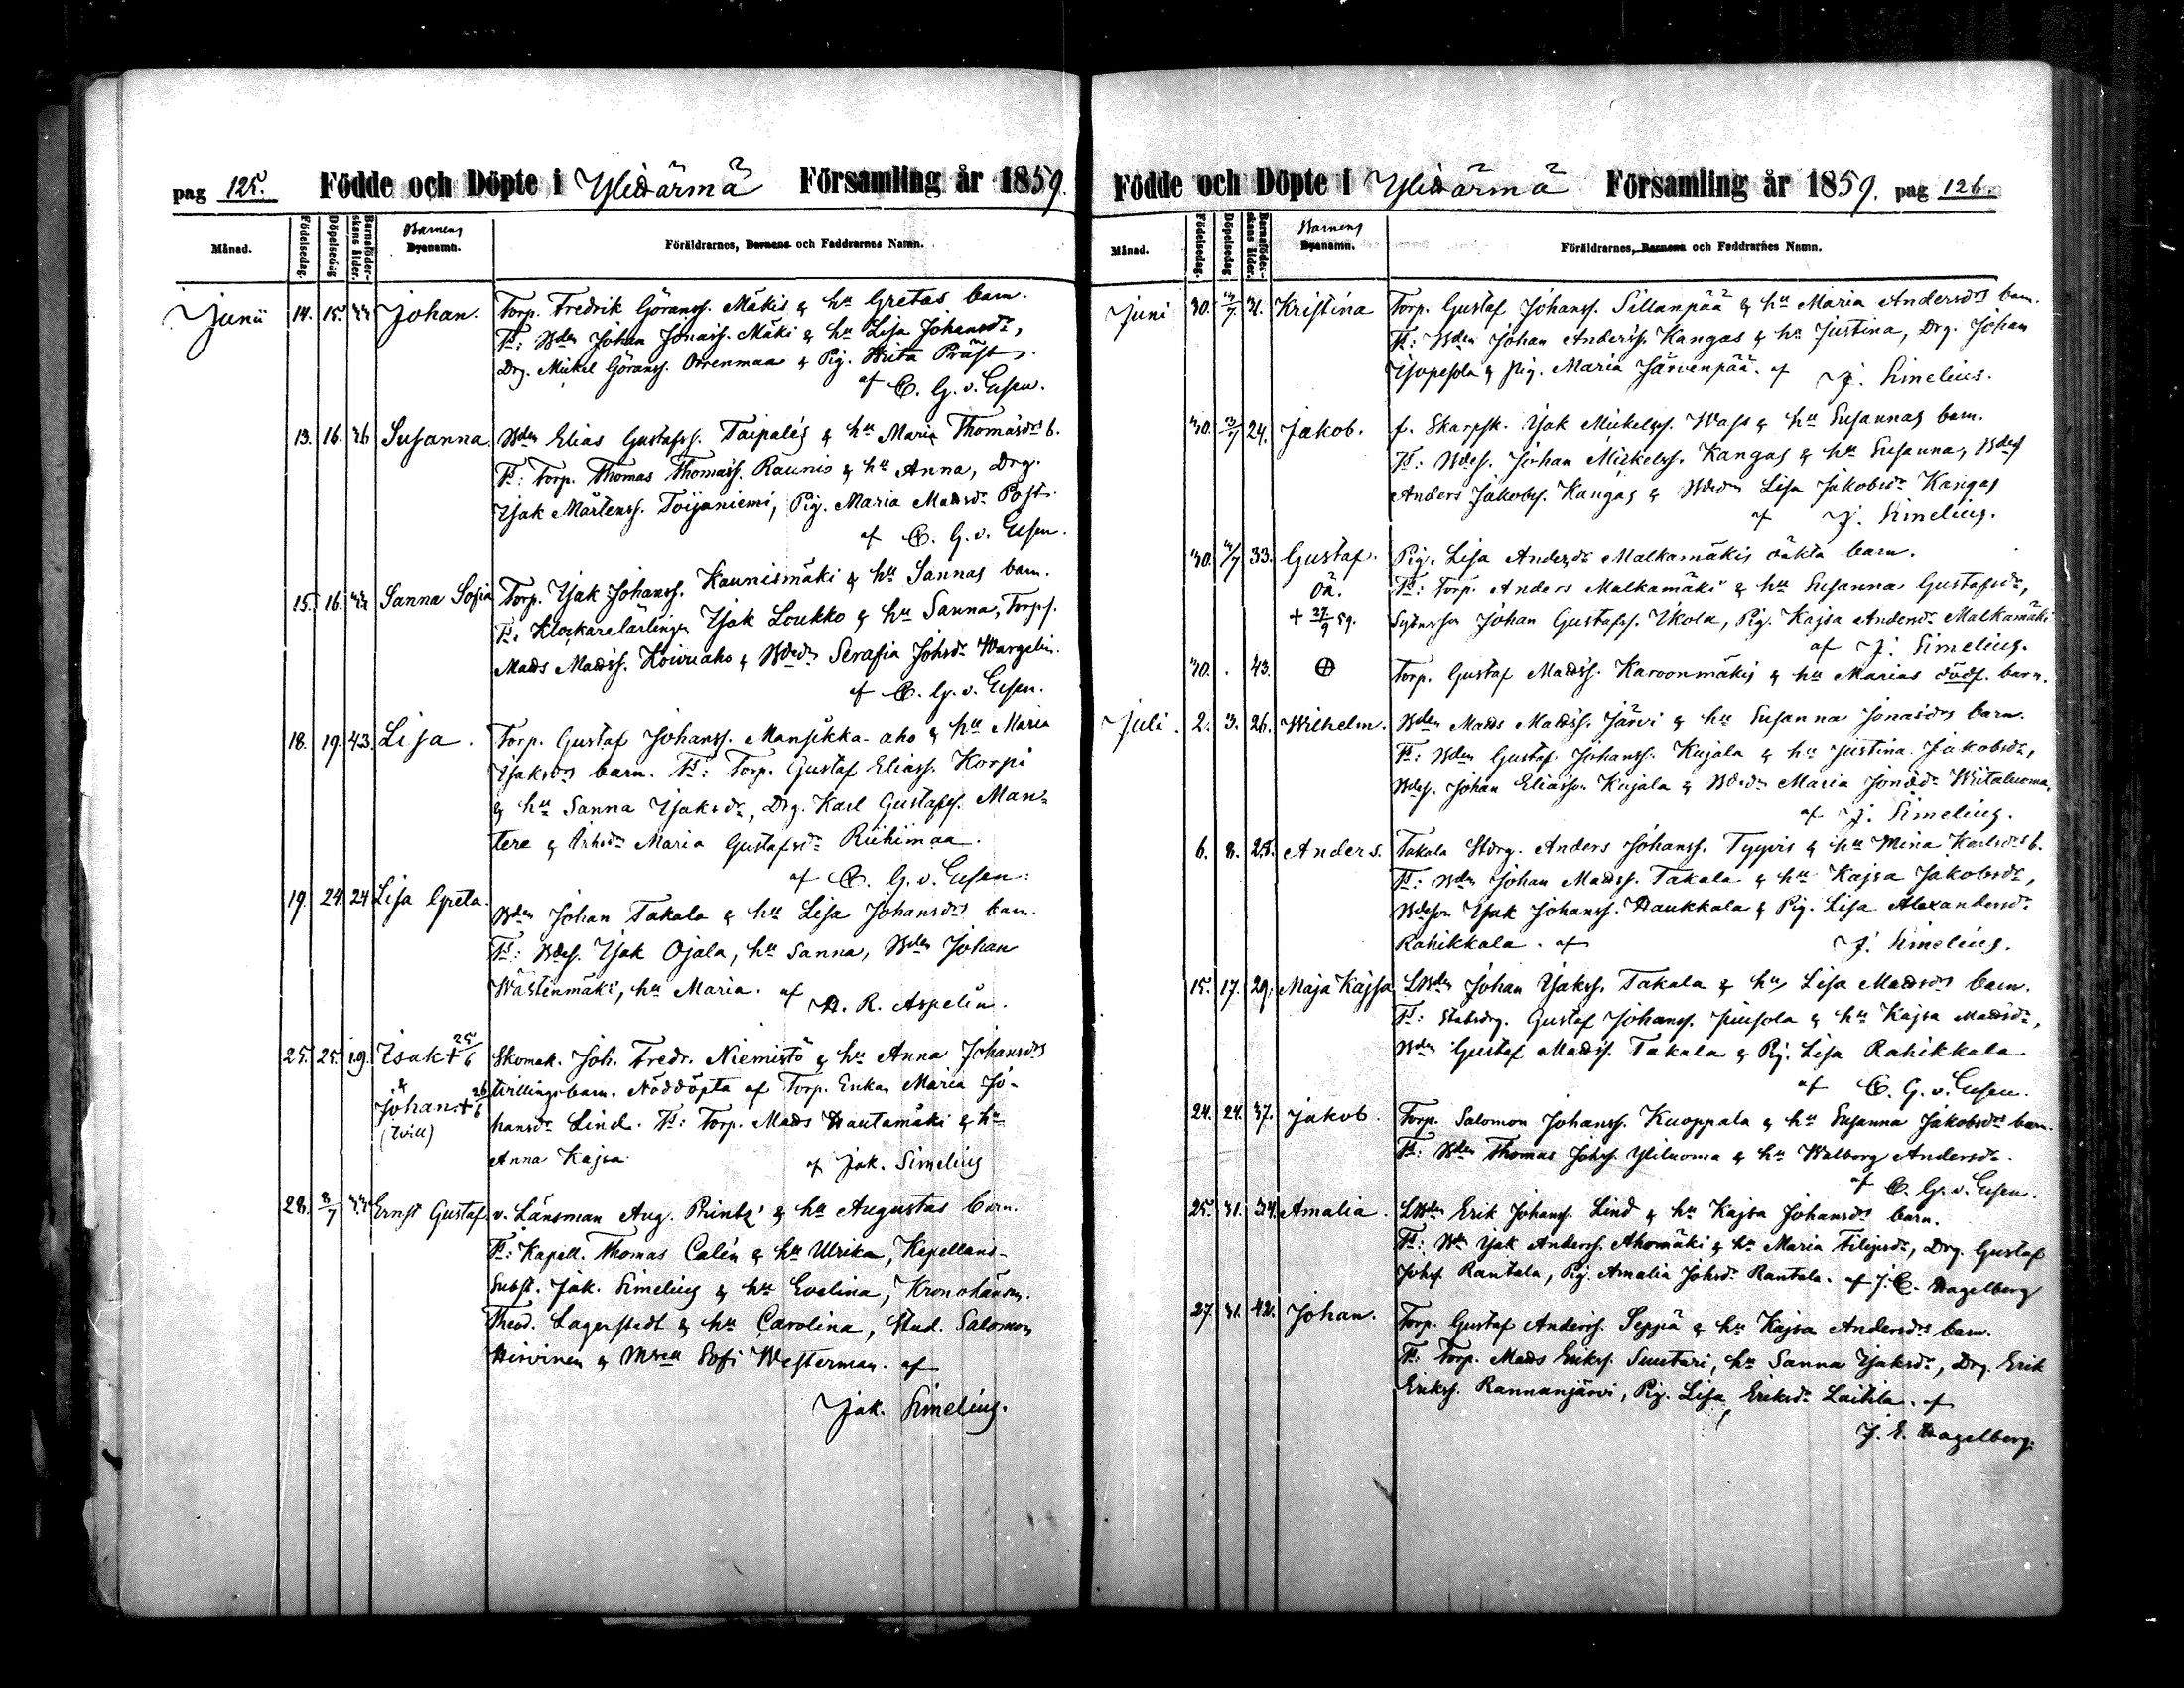 pag 125. Födde och Döpte i Ylihärmä Församling år 1859.
Månad. Födelsedag. Döpelsedag Barnaföderskans ålder. Barnens Byanamn. Föräldrarnes, Barnens och Faddrarnes Namn.
Junii 14. 15. Johan. Torp. Fredrik Göranss. Mäkis & hu Gretas barn.
Fr: Bden Johan Jonass. Mäki & hu Lisa Johansdr,
Drg. Mickel Göranss. Orrenmaa & Pig. Brita Präst.
af C. G. v. Essen.
13. 16. 36 Susanna. Bden Elias Gustafss. Taipales & hu Maria Thomasdrs b.
Fr: Torp. Thomas Thomass. Raunio & hu Anna, Drg.
Isak Mårtenss. Toijaniemi, Pig. Maria Madsdr Post.
af C. G. v. Essen.
15. 16. Sanna Sofia Torp. Isak Johanss. Kaunismäki & hu Sannas barn.
Fr. Klockarelärlingen Isak Loukko & hu Sanna, Torps.
Mads Madss. Koivuaho & Bdedr Serafia Johsdr Wargelin.
af C. G. v. Essen.
18. 19. 43. Lisa. Torp. Gustaf Johanss. Mansikka-aho & hu Maria
Isaksdrs barn. Fr: Torp. Gustaf Eliass. Korpi
& hu Sanna Isaksdr, Drg. Karl Gustafss. Man-
tere & Maria Gustafsdr Riihimaa.
af C. G. v. Essen.
19. 24. 24 Lisa Greta. Bden Johan Takala & hu Lisa Johansdrs barn.
Fr: Bdes. Isak Ojala, hu Sanna, Bden Johan
Wästinmäki, hu Maria. af
H. R. Aspelin.
25. 25. 19. Isak + 25/6 Skomak. Joh. Fredr. Niemistö & hu Anna Johansdrs
& Johan. + 26/6 tvillingsbarn. Nöddöpta af Torp. Enkan Maria Jo-
(tvill) hansdr Lind. Fr: Torp. Mads Hautamäki & hu
Anna Kajsa af Jak. Simelius
28. 3/7 33 Ernst Gustaf. v. Länsman Aug. Printz & hu Augustas barn.
Fr: Kapell. Thomas Calén & hu Ulrika, Kapellans-
Subst. Jak. Simelius & hu Evelina, Kronolänsm.
Theod. Lagerstedt & hu Carolina, Stud. Salomon
Hirvinen & Mlle Sofi Westerman. af
Jak. Simelius.
Födde och Döpte i Ylihärmä Församling år 1859. pag 126
Månad. Födelsedag. Döpelsedag Barnaföderskans ålder. Barnens Byanamn. Föräldrarnes, Barnens och Faddrarnes Namn.
Juni 30. 3/7 31. Kristina Torp. Gustaf Johanss. Sillanpää & hu Maria Andersdrs barn.
Fr: Bden Johan Anderss. Kangas & hu Justina, Drg. Johan
Isopesola & Pig. Maria Järvenpää. af J. Simelius.
30. 3/7 24. Jakob. f. Skarpsk. Isak Mickelss. Wass & hu Susannas barn.
Fr: Bdes. Johan Mickelss. Kangas & hu Susanna, Bdes
Anders Jakobss. Kangas & Bdedr Lisa Jakobsdr Kangas
af J. Simelius.
30. 33. Gustaf. Pig. Lisa Andersdr Malkamäkis oäkta barn.
Oä. Fr: Torp. Anders Malkamäki & hu Susanna Gustafsdr,
+ 27/9 59. Johan Gustafss. Ikola, Pig. Kajsa Andersdr Malkamäki
af J. Simelius.
30. . 43. Torp. Gustaf Madss. Karoonmäkis & hu Marias dödf. barn.
Juli. 2. 3. 26. Wilhelm. Bden Mads Madss. Järvi & hu Susanna Jonasdrs barn.
Fr: Bden Gustaf Johanss. Kujala & hu Justina Jakobsdr,
Bdes. Johan Eliasson Kujala & Bdedr Maria Jonasdr Witaluoma.
af J. Simelius.
6. 8. 25. Anders. Takala Stdrg. Anders Johanss. Tyyvis & hu Mina Karlsdrs b.
Fr: Bden Johan Madss. Takala & hu Kajsa Jakobsdr,
Bdeson Isak Johanss. Haukkala & Pig. Lisa Alexandersdr
Rahikkala. af J. Simelius.
15. 17. 29. Maja Kajsa LBden Johan Isakss. Takala & hu Lisa Madsdrs barn.
Fr: Stabsdrg. Gustaf Johanss. & hu Kajsa Madsdr,
Bden Gustaf Madss. Takala & Pig. Lisa Rahikkala
af C. G. v. Essen.
24. 24. 37. Jakob. Torp. Salomon Johanss. Kuoppala & hu Susanna Jakobsdrs barn.
Fr: Bden Thomas Johss. Yliluoma & hu Walborg Andersdr.
af C. G. v. Essen.
25. 31. 34. Amalia. LBden Erik Johanss. Lind & hu Kajsa Johansdrs barn.
Fr: Isak Anderss. Ahomäki & hu Maria Filipsdr, Drg. Gustaf
Johss. Rantala, Pig. Amalia Johsdr Rantala. af J. E. Hagelberg
27. 31. 42. Johan. Torp. Gustaf Anderss. Seppä & hu Kajsa Andersdrs barn.
Fr: Torp. Mads Erikss. Suutari, hu Sanna Isaksdr, Drg. Erik
Erikss. Rannanjärvi, Pig. Lisa Eriksdr Laitila. af
J. E. Hagelberg.